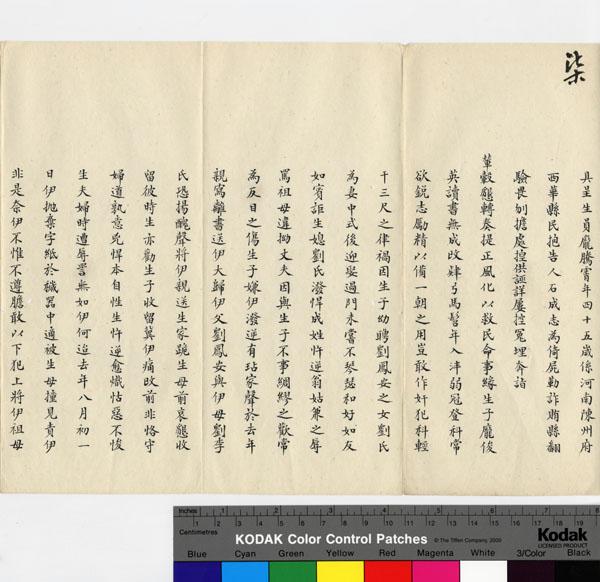 柒
具呈生員龐騰霄年四十五歲係河南陳州府
西華縣民抱告人石成志為倚屍勒詐賄縣翻
驗畏刎擔處控供誣詳屢控冤埋奔詣
輦轂懸轉奏提正風化以救民命事緣生子龐俊
英讀書無成改肄弓馬髫年入泮弱冠登科常
欲銳志勵精以備一朝之用豈敢作奸犯科輕
干三尺之律禍因生子幼聘劉鳳安之女劉氏
為妻中式後迎娶過門未嘗不琴瑟和好如友
如賓詎生媳劉氏潑悍成姓忤逆翁姑兼之辱
罵祖母違拗丈夫因與生子不事綢繆之歡常
為反目之傷生子嫌伊潑逆有玷家聲於去年
親寫離書送伊大歸伊父劉鳳安與伊母劉李
氏恐揚醜聲將伊親送生家跪生母前哀懇收
留彼時生亦勸生子收留冀伊痛改前非恪守
婦道孰意兇悍本自性生忤逆愈熾怙惡不悛
生夫婦時遭辱詈無如伊何迨去年八月初一
日伊拋棄字紙於穢器中適被生母撞見責伊
非是奈伊不惟不遵膽敢以下犯上將伊祖母
Inches 1 2 3 4 5 6 7 8
Centimetres 1 2 3 4 5 6 7 8 9 10 11 12 13 14 15 16 17 18 19
KODAK Color Control Patches © The Tiffen Company, 2000 Kodak LICENSED PRODUCT
Blue Cyan Green Yellow Red Magenta White 3/Color Black